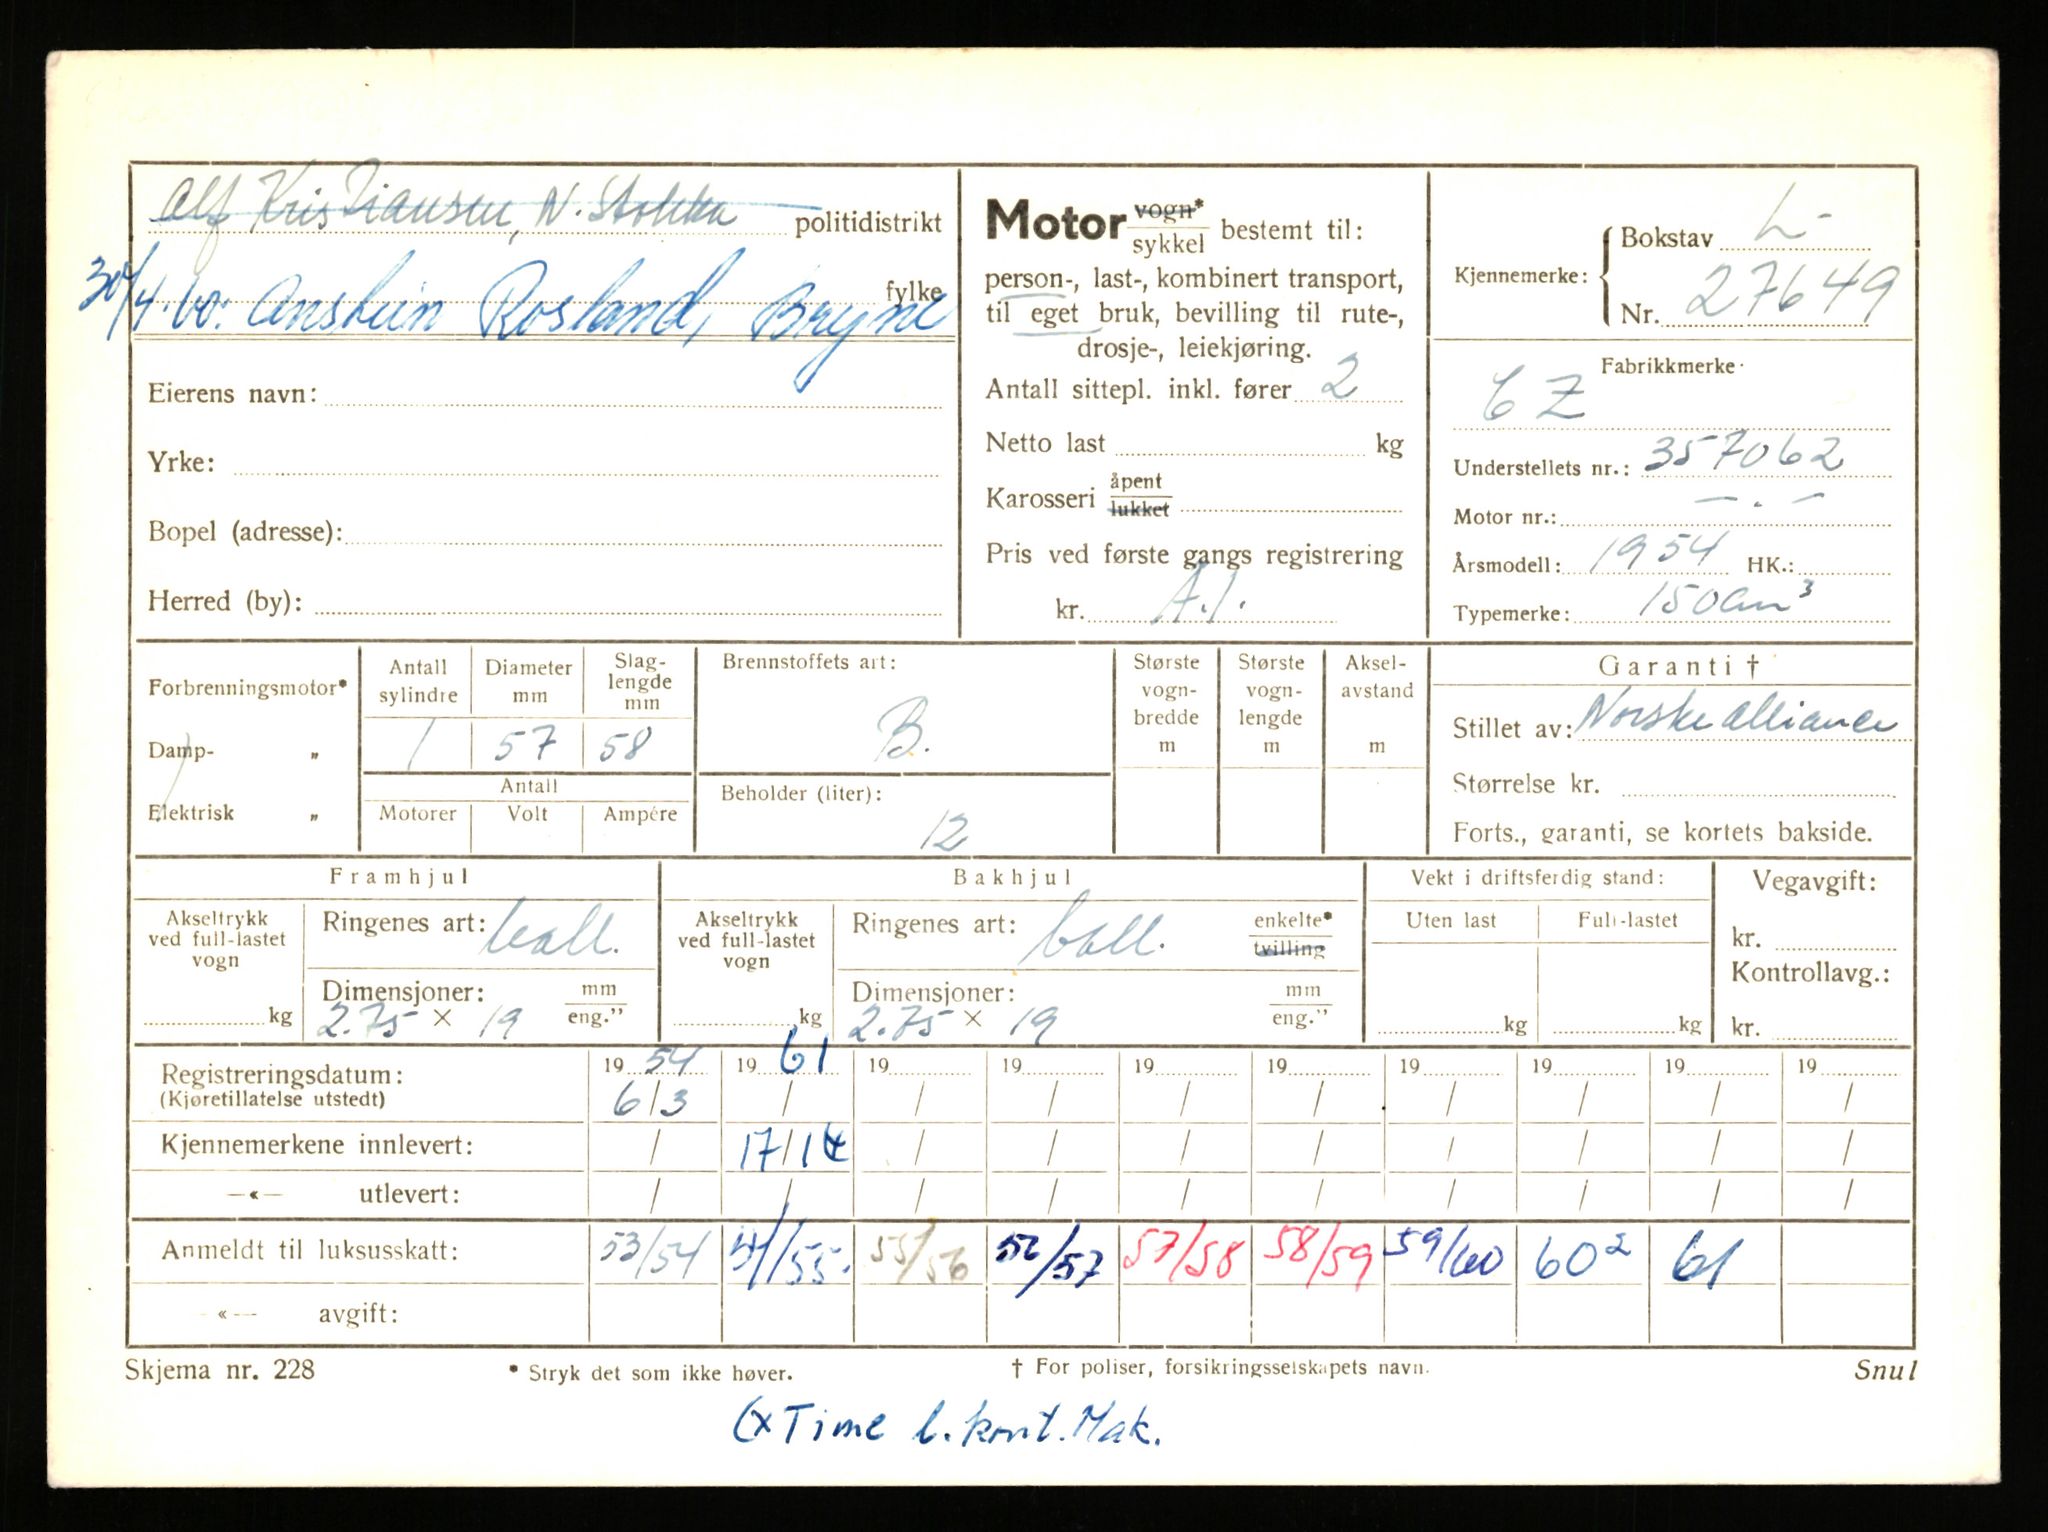 Alf Kristiansen, N. Stokka politidistrikt
30/4.60: Anstein Rosland, Bryne fylke
Eierens navn:
Yrke:
Bopel (adresse):
Herred (by):
Motor vogn* sykkel bestemt til:
person-, last-, kombinert transport,
til eget bruk, bevilling til rute-,
drosje-, leiekjøring.
Antall sittepl. inkl. fører 2
Netto last kg
Karosseri åpent lukket
Pris ved første gangs registrering
kr. A.I.
Kjennemerke: Bokstav L-
Nr. 27649
Fabrikkmerke
CZ
Understellets nr.: 357062
Motor nr.: — . —
Årsmodell: 1954 HK.:
Typemerke: 150 cm³
Forbrenningsmotor*
Damp- „
Elektrisk „
Antall sylindre
Diameter mm
Slag-lengde mm
1 57 58
Antall
Motorer Volt Ampére
Brennstoffets art:
B.
Beholder (liter):
12
Største vogn-bredde m
Største vogn-lengde m
Aksel-avstand m
Garanti †
Stillet av: Norske Alliance
Størrelse kr.
Forts., garanti, se kortets bakside.
Framhjul
Akseltrykk ved full-lastet vogn
kg
Ringenes art: ball.
Dimensjoner: mm eng."
2.75 × 19
Bakhjul
Akseltrykk ved full-lastet vogn
kg
Ringenes art: ball. enkelte* tvilling
Dimensjoner: mm eng."
2.75 × 19
Vekt i driftsferdig stand:
Uten last Full-lastet
kg kg
Vegavgift:
kr.
Kontrollavg.:
kr.
Registreringsdatum: 19 54 19 61 19 19 19 19 19 19 19 19
(Kjøretillatelse utstedt) 6/3 / / / / / / / / /
Kjennemerkene innlevert: / 17/14 / / / / / / / /
—«— utlevert: / / / / / / / / / /
Anmeldt til luksusskatt: 53/54 54/55. 55/56 56/57 57/58 58/59 59/60 60² 61
—«— avgift:
Skjema nr. 228 * Stryk det som ikke høver. † For poliser, forsikringsselskapets navn. Snul
(x Time l. kont. Mak.